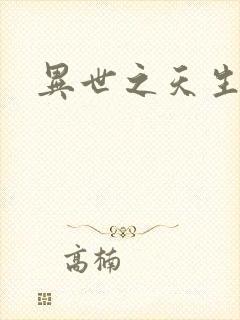 異世之天生
高楠